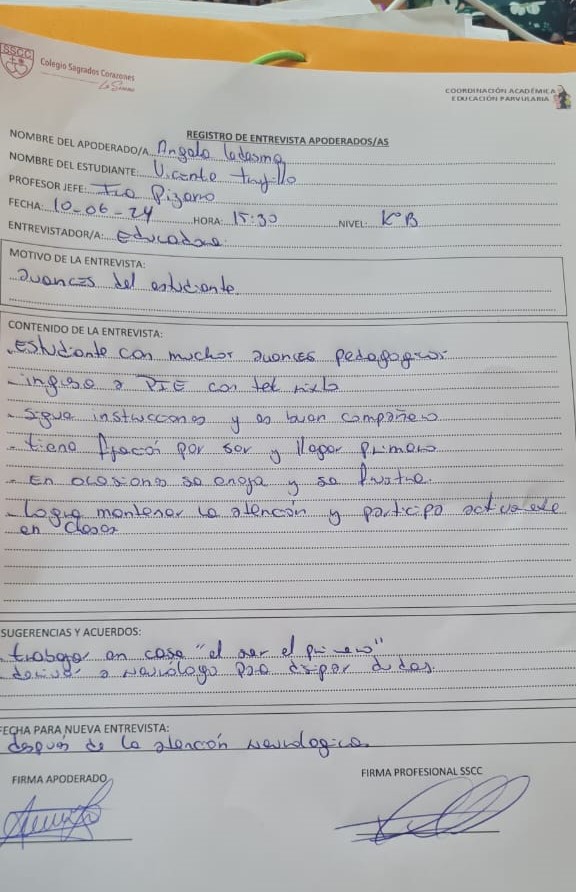 SSCC
Colegio Sagrados Corazones
La Serena
COORDINACIÓN ACADÉMICA
EDUCACIÓN PARVULARIA
REGISTRO DE ENTREVISTA APODERADOS/AS
NOMBRE DEL APODERADO/A: Angela Ledesma
NOMBRE DEL ESTUDIANTE: Vicente Trujillo
PROFESOR JEFE: Tia Pizarro
FECHA: 10-06-24 HORA: 15:30 NIVEL: K°B
ENTREVISTADOR/A: Educadora.
MOTIVO DE LA ENTREVISTA:
avances del estudiante.
CONTENIDO DE LA ENTREVISTA:
. Estudiante con muchos avances pedagogicos.
- ingreso a PIE con tel mixto
- sigue instrucciones y es buen compañero
- tiene fijación por ser y llegar primero
- En ocasiones se enoja y se frustra.
- Logra mantener la atención y participa
en clases
SUGERENCIAS Y ACUERDOS:
. trabajar en casa "el ser el primero"
. derivar a neurólogo para disipar dudas.
FECHA PARA NUEVA ENTREVISTA:
después de la atención neurologica.
FIRMA APODERADO
FIRMA PROFESIONAL SSCC